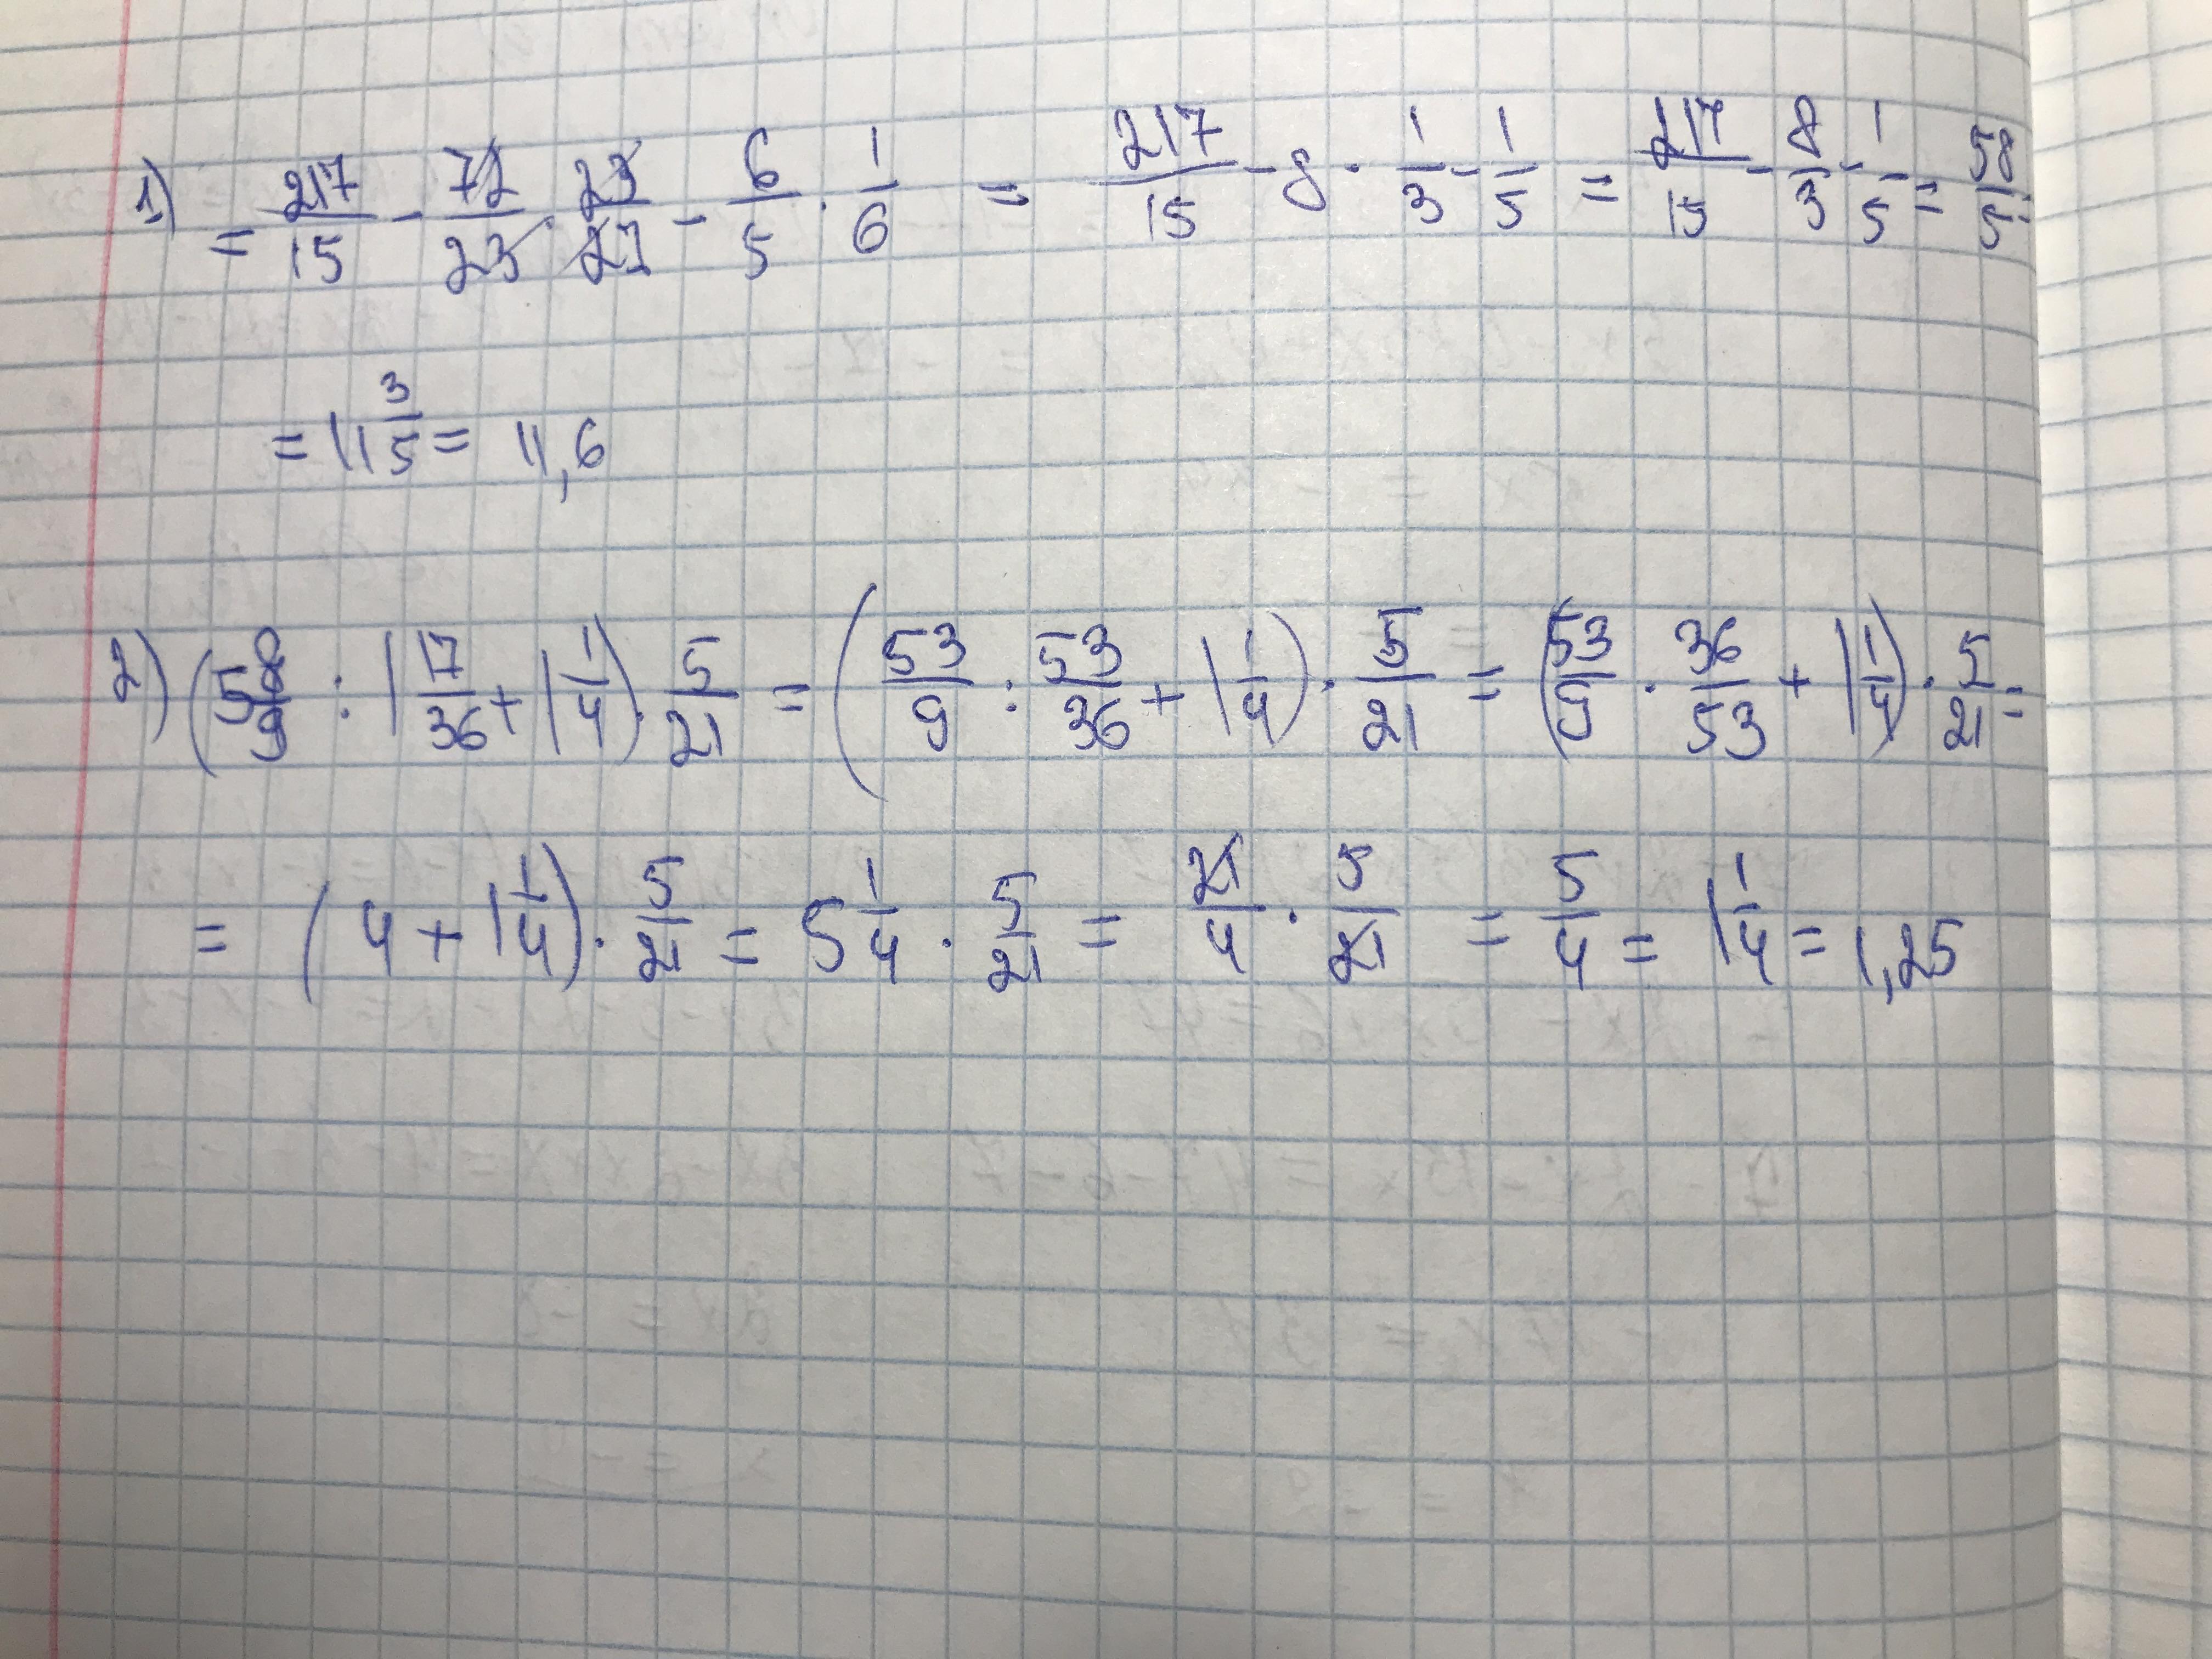 1) = 217/15 - 72/23 · 23/27 - 6/5 · 1/6 = 217/15 - 8 · 1/3 - 1/5 = 217/15 - 8/3 - 1/5 = 58/5 =
= 11 3/5 = 11,6
2) (5 8/9 : 1 17/36 + 1 1/4) · 5/21 = (53/9 : 53/36 + 1 1/4) · 5/21 = (53/9 · 36/53 + 1 1/4) · 5/21 =
= (4 + 1 1/4) · 5/21 = 5 1/4 · 5/21 = 21/4 · 5/21 = 5/4 = 1 1/4 = 1,25